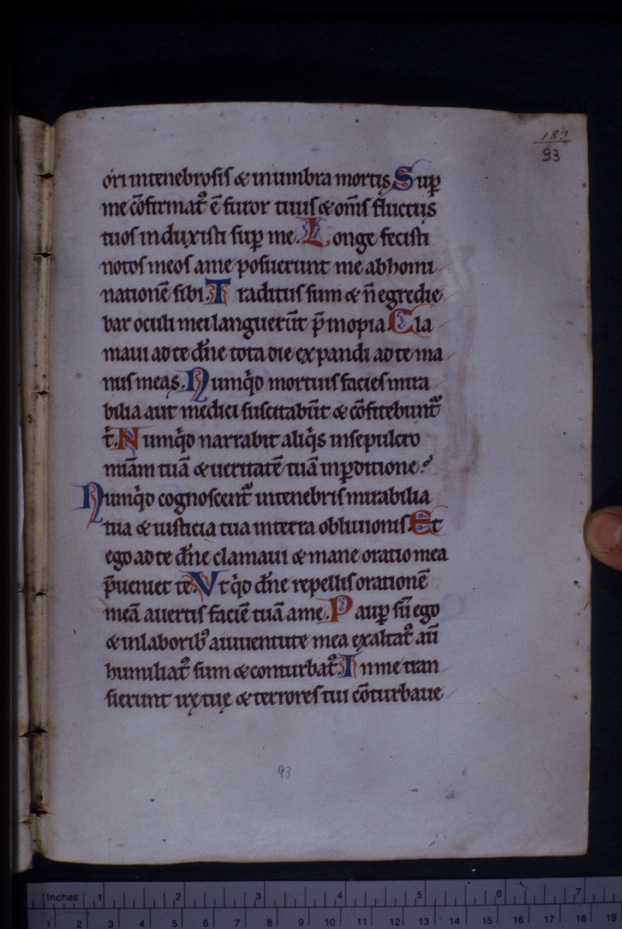 183
93
óri intenebrosis & inumbra mortis Sup̱
me c̄firmat᷑ ē furor tuus & om̄s fluctus
tuos induxisti sup̱ me. Longe fecisti
notos meos ame posuerunt me abhomi
nationē sibi. Traditus sum & n̄ egredie
bar oculi mei languerūt p̄ inopia Cla
maui ad te dn̄e tota die expandi ad te ma
nus meas. Numq̇d mortuis facies mira
bilia aut medici suscitabūt & cōfitebunt᷑
t̄. Numq̇d narrabit aliq̇s insepulcro
mīam tuā & ueritatē tuā inp̱ditione?
Numq̇d cognoscent᷑ intenebris mirabilia
tua & iusticia tua interra obliuionis Et
ego ad te dn̄e clamaui & mane oratio mea
p̄ueniet te. Vt q̇d dn̄e repellis orationē
meā auertis faciē tuā ame. Paup̱ sū ego
& inlaborib᷒ aiuuentute mea exaltat᷒ aū
humiliat᷒ sum & conturbat᷒. In me tran
sierunt irę tuę & terrores tui cōturbaue
93
Inches 1 2 3 4 5 6 7
1 2 3 4 5 6 7 8 9 10 11 12 13 14 15 16 17 18 19